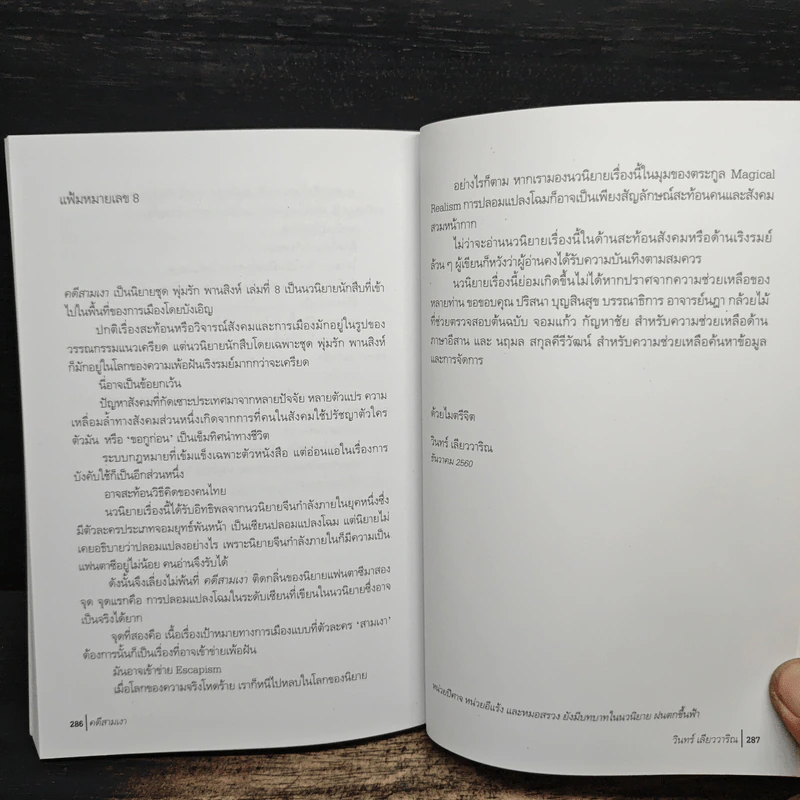 แฟ้มหมายเลข 8
คดีสามเงา เป็นนิยายชุด พุ่มรัก พานสิงห์ เล่มที่ 8 เป็นนวนิยายนักสืบที่เข้า
ไปในพื้นที่ของการเมืองโดยบังเอิญ
ปกติเรื่องสะท้อนหรือวิจารณ์สังคมและการเมืองมักอยู่ในรูปของ
วรรณกรรมแนวเครียด แต่นวนิยายนักสืบโดยเฉพาะชุด พุ่มรัก พานสิงห์
ก็มักอยู่ในโลกของความเพ้อฝันเริงรมย์มากกว่าจะเครียด
นี่อาจเป็นข้อยกเว้น
ปัญหาสังคมที่กัดเซาะประเทศมาจากหลายปัจจัย หลายตัวแปร ความ
เหลื่อมล้ำทางสังคมส่วนหนึ่งเกิดจากการที่คนในสังคมใช้ปรัชญาตัวใคร
ตัวมัน หรือ ‘ขอกูก่อน’ เป็นเข็มทิศนำทางชีวิต
ระบบกฎหมายที่เข้มแข็งเฉพาะตัวหนังสือ แต่อ่อนแอในเรื่องการ
บังคับใช้ก็เป็นอีกส่วนหนึ่ง
อาจสะท้อนวิธีคิดของคนไทย
นวนิยายเรื่องนี้ได้รับอิทธิพลจากนวนิยายจีนกำลังภายในยุคหนึ่งซึ่ง
มีตัวละครประเภทจอมยุทธ์พันหน้า เป็นเซียนปลอมแปลงโฉม แต่นิยายไม่
เคยอธิบายว่าปลอมแปลงอย่างไร เพราะนิยายจีนกำลังภายในก็มีความเป็น
แฟนตาซีอยู่ไม่น้อย คนอ่านจึงรับได้
ดังนั้นจึงเลี่ยงไม่พ้นที่ คดีสามเงา ติดกลิ่นของนิยายแฟนตาซีมาสอง
จุด จุดแรกคือ การปลอมแปลงโฉมในระดับเซียนที่เขียนในนวนิยายซึ่งอาจ
เป็นจริงได้ยาก
จุดที่สองคือ เนื้อเรื่องเป้าหมายทางการเมืองแบบที่ตัวละคร ‘สามเงา’
ต้องการนั้นก็เป็นเรื่องที่อาจเข้าข่ายเพ้อฝัน
มันอาจเข้าข่าย Escapism
เมื่อโลกของความจริงโหดร้าย เราก็หนีไปหลบในโลกของนิยาย
286 | คดีสามเงา
อย่างไรก็ตาม หากเรามองนวนิยายเรื่องนี้ในมุมของตระกูล Magical
Realism การปลอมแปลงโฉมก็อาจเป็นเพียงสัญลักษณ์สะท้อนคนและสังคม
สวมหน้ากาก
ไม่ว่าจะอ่านนวนิยายเรื่องนี้ในด้านสะท้อนสังคมหรือด้านเริงรมย์
ล้วน ๆ ผู้เขียนก็หวังว่าผู้อ่านคงได้รับความบันเทิงตามสมควร
นวนิยายเรื่องนี้ย่อมเกิดขึ้นไม่ได้หากปราศจากความช่วยเหลือของ
หลายท่าน ขอขอบคุณ ปริสนา บุญสินสุข บรรณาธิการ อาจารย์นฎา กล้วยไม้
ที่ช่วยตรวจสอบต้นฉบับ จอมแก้ว กัญหาชัย สำหรับความช่วยเหลือด้าน
ภาษาอีสาน และ นฤมล สกุลคีรีวัฒน์ สำหรับความช่วยเหลือค้นหาข้อมูล
และการจัดการ
ด้วยไมตรีจิต
วินทร์ เลียววาริณ
ธันวาคม 2560
หน่วยปีศาจ หน่วยอีแร้ง และหมอสรวง ยังมีบทบาทในนวนิยาย ฝนตกขึ้นฟ้า
วินทร์ เลียววาริณ | 287